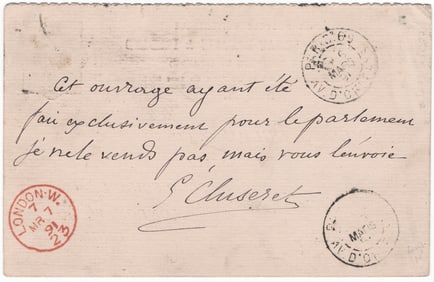 Cet ouvrage ayant été
fai exclusivement pour le parlement
je ne le vends pas, mais vous l'envoie
G Cluseret
LONDON·W.
7
MR 7
91
23
MARS
AV. D'O
MARS
AV. D'O